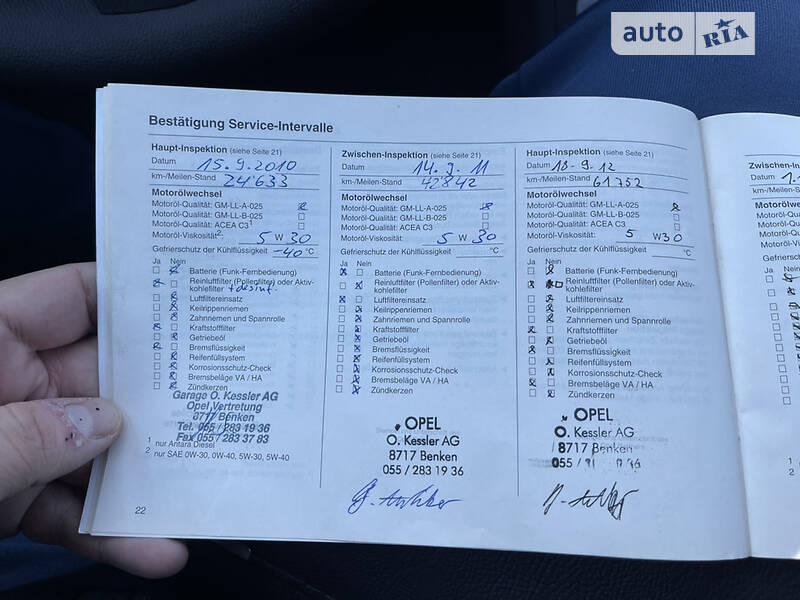 auto RIA
Bestätigung Service-Intervalle
Haupt-Inspektion (siehe Seite 21)
Datum 15.9.2010
km-/Meilen-Stand 24'633
Motorölwechsel
Motoröl-Qualität: GM-LL-A-025
Motoröl-Qualität: GM-LL-B-025
Motoröl-Qualität: ACEA C3¹
Motoröl-Viskosität²: 5 W 30
Gefrierschutz der Kühlflüssigkeit -40 °C
Ja Nein
Batterie (Funk-Fernbedienung)
Reinluftfilter (Pollenfilter) oder Aktiv-
kohlefilter + desinf.
Luftfiltereinsatz
Keilrippenriemen
Zahnriemen und Spannrolle
Kraftstofffilter
Getriebeöl
Bremsflüssigkeit
Reifenfüllsystem
Korrosionsschutz-Check
Bremsbeläge VA / HA
Zündkerzen
Garage O. Kessler AG
Opel Vertretung
8717 Benken
Tel. 055 / 283 19 36
Fax 055 / 283 37 83
1 nur Antara Diesel
2 nur SAE 0W-30, 0W-40, 5W-30, 5W-40
22
Zwischen-Inspektion (siehe Seite 21)
Datum 14.9.11
km-/Meilen-Stand 42842
Motorölwechsel
Motoröl-Qualität: GM-LL-A-025
Motoröl-Qualität: GM-LL-B-025
Motoröl-Qualität: ACEA C3
Motoröl-Viskosität: 5 W 30
Gefrierschutz der Kühlflüssigkeit °C
Ja Nein
Batterie (Funk-Fernbedienung)
Reinluftfilter (Pollenfilter) oder Aktiv-
kohlefilter
Luftfiltereinsatz
Keilrippenriemen
Zahnriemen und Spannrolle
Kraftstofffilter
Getriebeöl
Bremsflüssigkeit
Reifenfüllsystem
Korrosionsschutz-Check
Bremsbeläge VA / HA
Zündkerzen
OPEL
O. Kessler AG
8717 Benken
055 / 283 19 36
Haupt-Inspektion (siehe Seite 21)
Datum 13.9.12
km-/Meilen-Stand 61752
Motorölwechsel
Motoröl-Qualität: GM-LL-A-025
Motoröl-Qualität: GM-LL-B-025
Motoröl-Qualität: ACEA C3
Motoröl-Viskosität: 5 W30
Gefrierschutz der Kühlflüssigkeit °C
Ja Nein
Batterie (Funk-Fernbedienung)
Reinluftfilter (Pollenfilter) oder Aktiv-
kohlefilter
Luftfiltereinsatz
Keilrippenriemen
Zahnriemen und Spannrolle
Kraftstofffilter
Getriebeöl
Bremsflüssigkeit
Reifenfüllsystem
Korrosionsschutz-Check
Bremsbeläge VA / HA
Zündkerzen
OPEL
O. Kessler AG
8717 Benken
055
Zwischen-In
Datum
km-/Meilen-S
Motorölwe
Motoröl-Qual
Motoröl-Qual
Motoröl-Qual
Motoröl-Vi
Gefrierschutz
Ja Nein
1
2